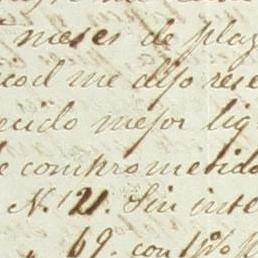 meses de plaz
me dijo rese
ecido mejor liq
e comprometido
N. 121. Sin inte
69. con 1 1/2 % p